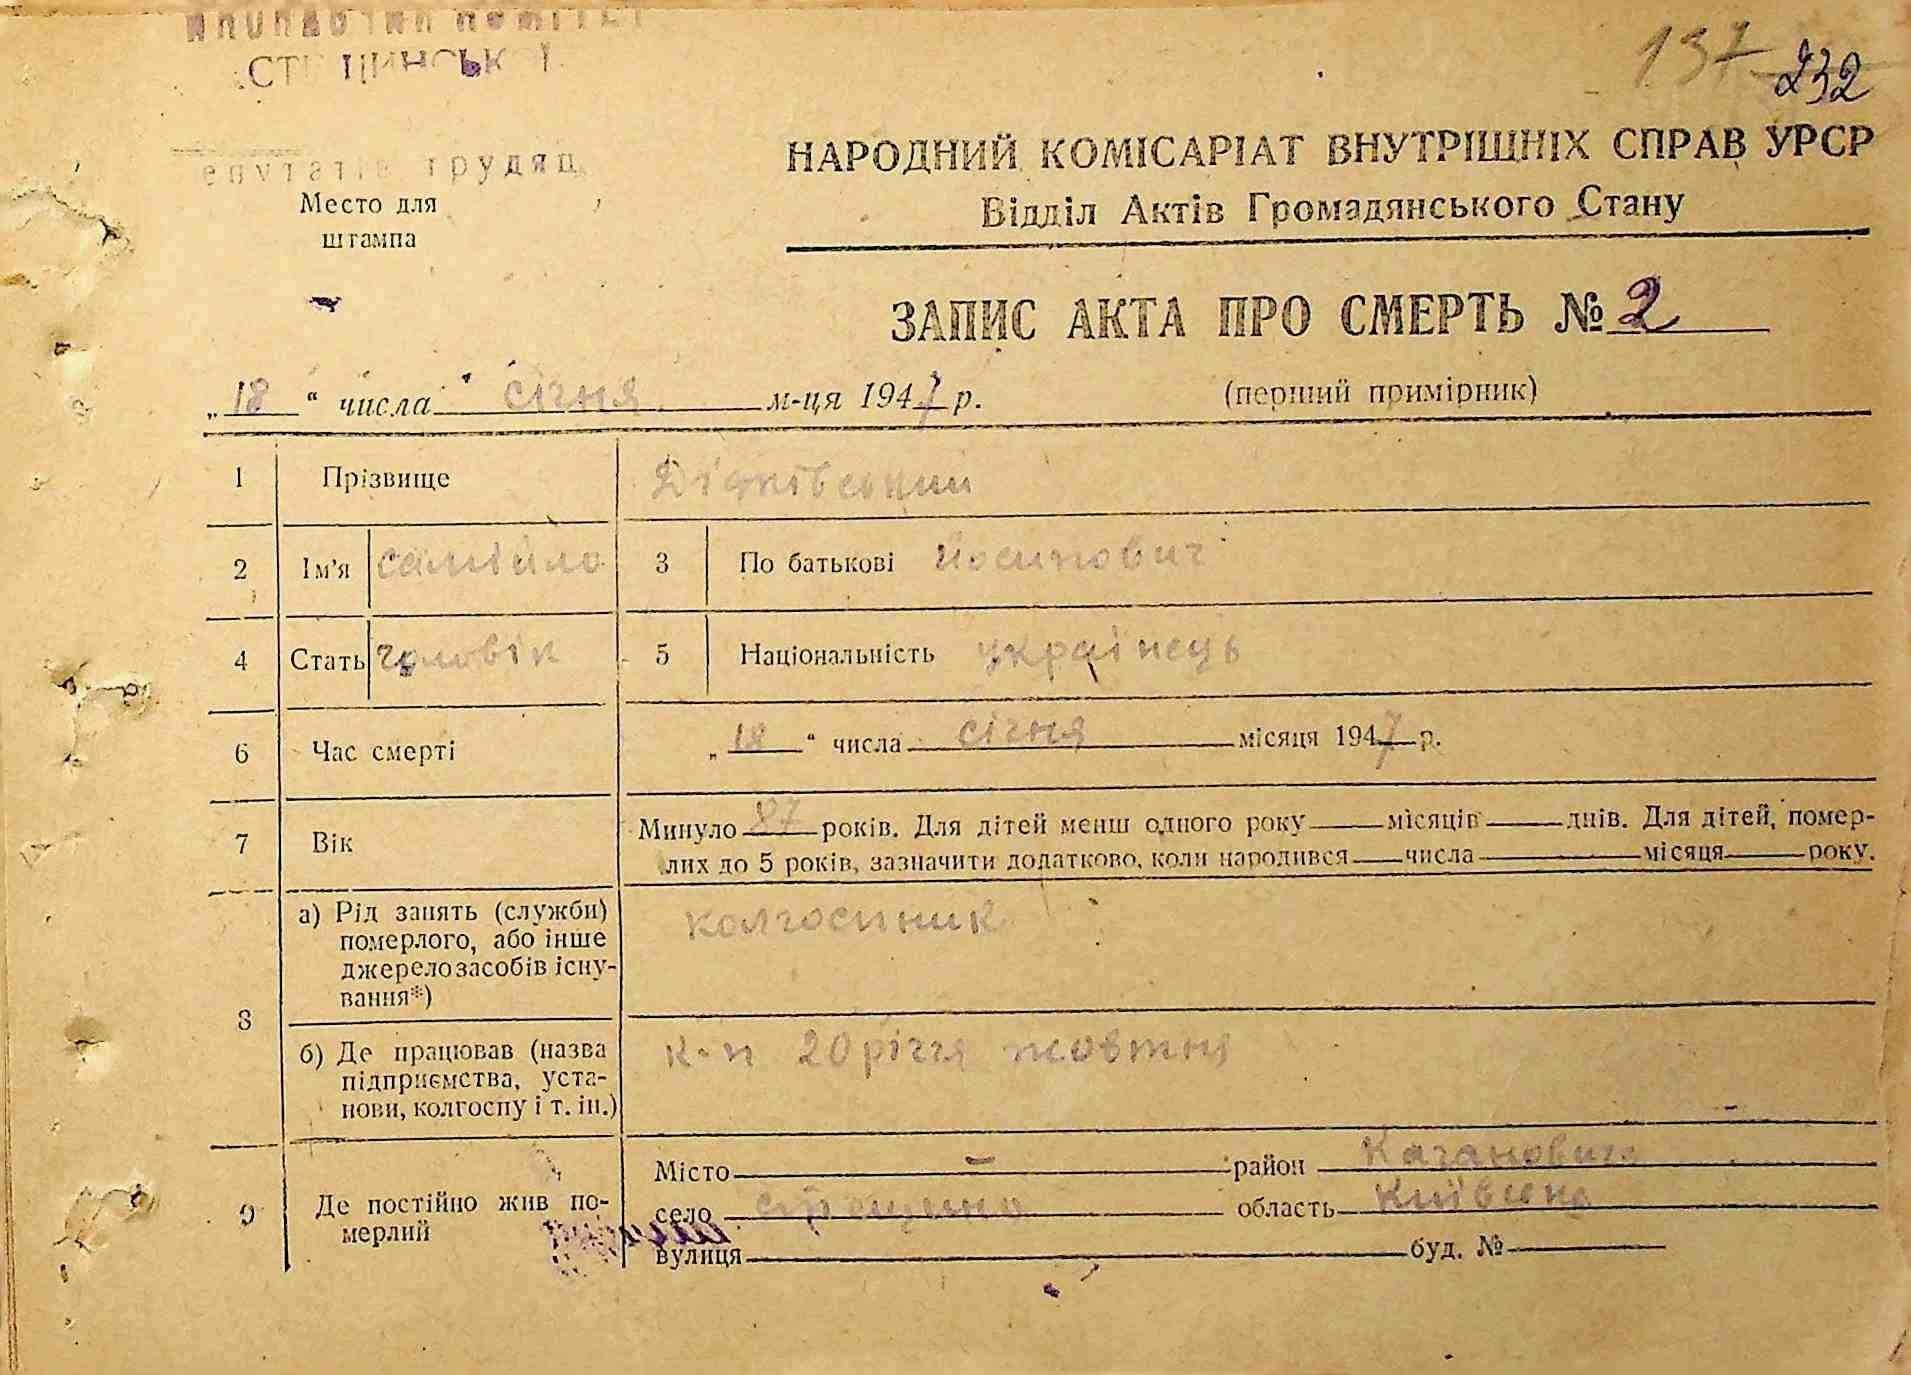 137 232
НАРОДНИЙ КОМІСАРІАТ ВНУТРІШНІХ СПРАВ УРСР
Відділ Актів Громадянського Стану
Место для
штампа
ЗАПИС АКТА ПРО СМЕРТЬ № 2
„18“ числа січня м-ця 1947 р. (перший примірник)
1 Прізвище Дідківський
2 Ім'я Самійло 3 По батькові Йосипович
4 Стать чоловік 5 Національність українець
6 Час смерті „18“ числа січня місяця 1947 р.
7 Вік Минуло 87 років. Для дітей менш одного року місяців днів. Для дітей, помер-
лих до 5 років, зазначити додатково, коли народився числа місяця року.
8 а) Рід занять (служби)
померлого, або інше
джерело засобів існу-
вання*)
колгоспник
б) Де працював (назва
підприємства, уста-
нови, колгоспу і т. ін.)
к-п 20 річчя жовтня
9 Де постійно жив по-
мерлий
Місто – район Кагановича
село область Київська
вулиця буд. №